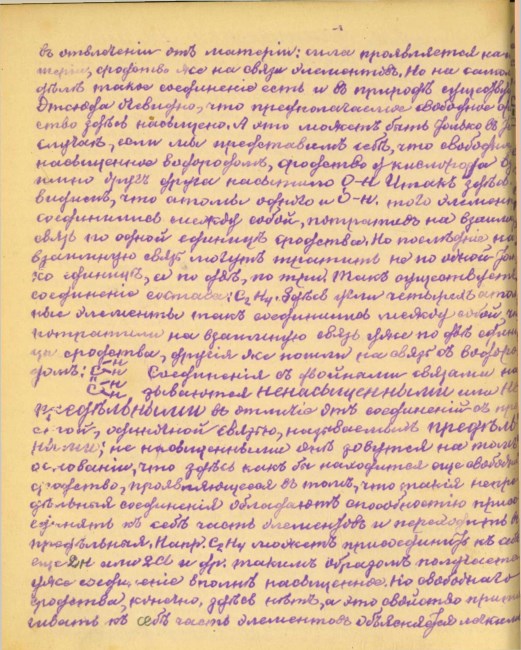 въ отвлеченіи отъ матеріи: сила проявляется на ма-
теріи, сродство же на связи элементовъ. Но на самомъ
дѣлѣ такое соединеніе есть и въ природѣ существуетъ
Отсюда очевидно, что предполагаемое свободное срод
ство здѣсь насыщено. А это можетъ быть только въ томъ
случаѣ, если мы представимъ себѣ, что свободное
насыщенное водородомъ, сродство у кислорода вза
имно другъ друга насытило О-Н Итакъ здѣсь
видимъ, что атомы одного и О-Н. того элемента
соединились между собой, потративъ на взаимную
связь по одной единицѣ сродства. Но послѣдніе на
взаимную связь могутъ тратить не по одной толь
ко единицѣ, а по двѣ, по три. Такъ существуетъ
соединеніе состава: C₂H₄. Здѣсь угли четырехатом
ные элементы такъ соединились между собой, что
потратили на взаимную связь уже по двѣ едини
цы сродства, другія же пошли на связь съ водоро
домъ: Соединенія съ двойными связями на
зываются ненасыщенными или не
предѣльными въ отличіе отъ соединеній съ про
стой, одиночной связью, называемыхъ предѣль
ными; ненасыщенными онѣ зовутся на томъ
основаніи, что здѣсь какъ бы находится еще свободное
сродство, проявляющееся въ томъ, что такія непре
дѣльныя соединенія обладаютъ способностію присо
единять къ себѣ часть элементовъ и переходить въ
предѣльныя. Напр. C₂H₄ можетъ присоединить къ себѣ
еще 2H или 2Cl и др. такимъ образомъ получается
уже соединеніе вполнѣ насыщенное. Но свободнаго
сродства, конечно, здѣсь нѣтъ, а это свойство притя
гивать къ себѣ часть элементовъ объясняется